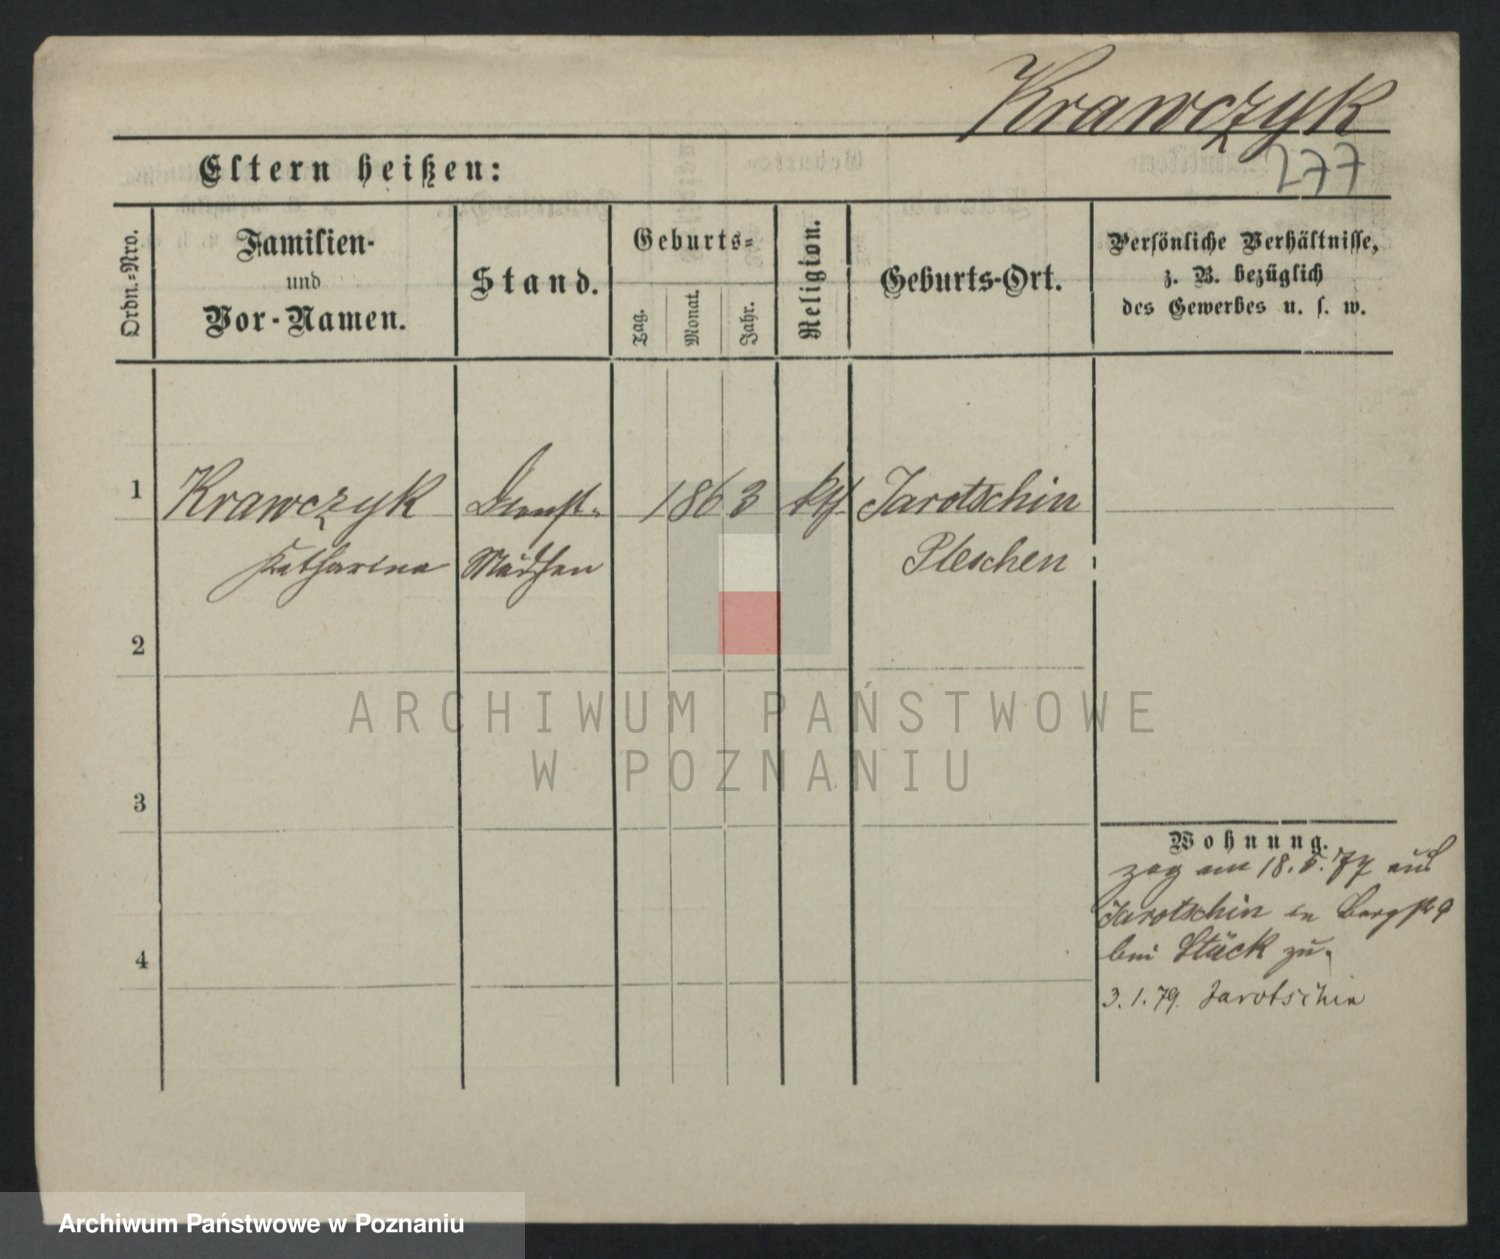 Krawczyk
277
Eltern heißen:
Ordn.-Nro.
Familien-
und
Vor-Namen.
Stand.
Geburts-
Tag.
Monat.
Jahr.
Religion.
Geburts-Ort.
Persönliche Verhältnisse,
z. B. bezüglich
des Gewerbes u. s. w.
1
Krawczyk
Katharina
Dienst-
Mädchen
1863
kth
Jarotschin
Pleschen
2
3
4
Wohnung.
zog am 18.5.77 aus
Jarotschin in Bergstr 9
bei Stäck zu.
3.1.79. Jarotschin
ARCHIWUM PAŃSTWOWE
W POZNANIU
Archiwum Państwowe w Poznaniu